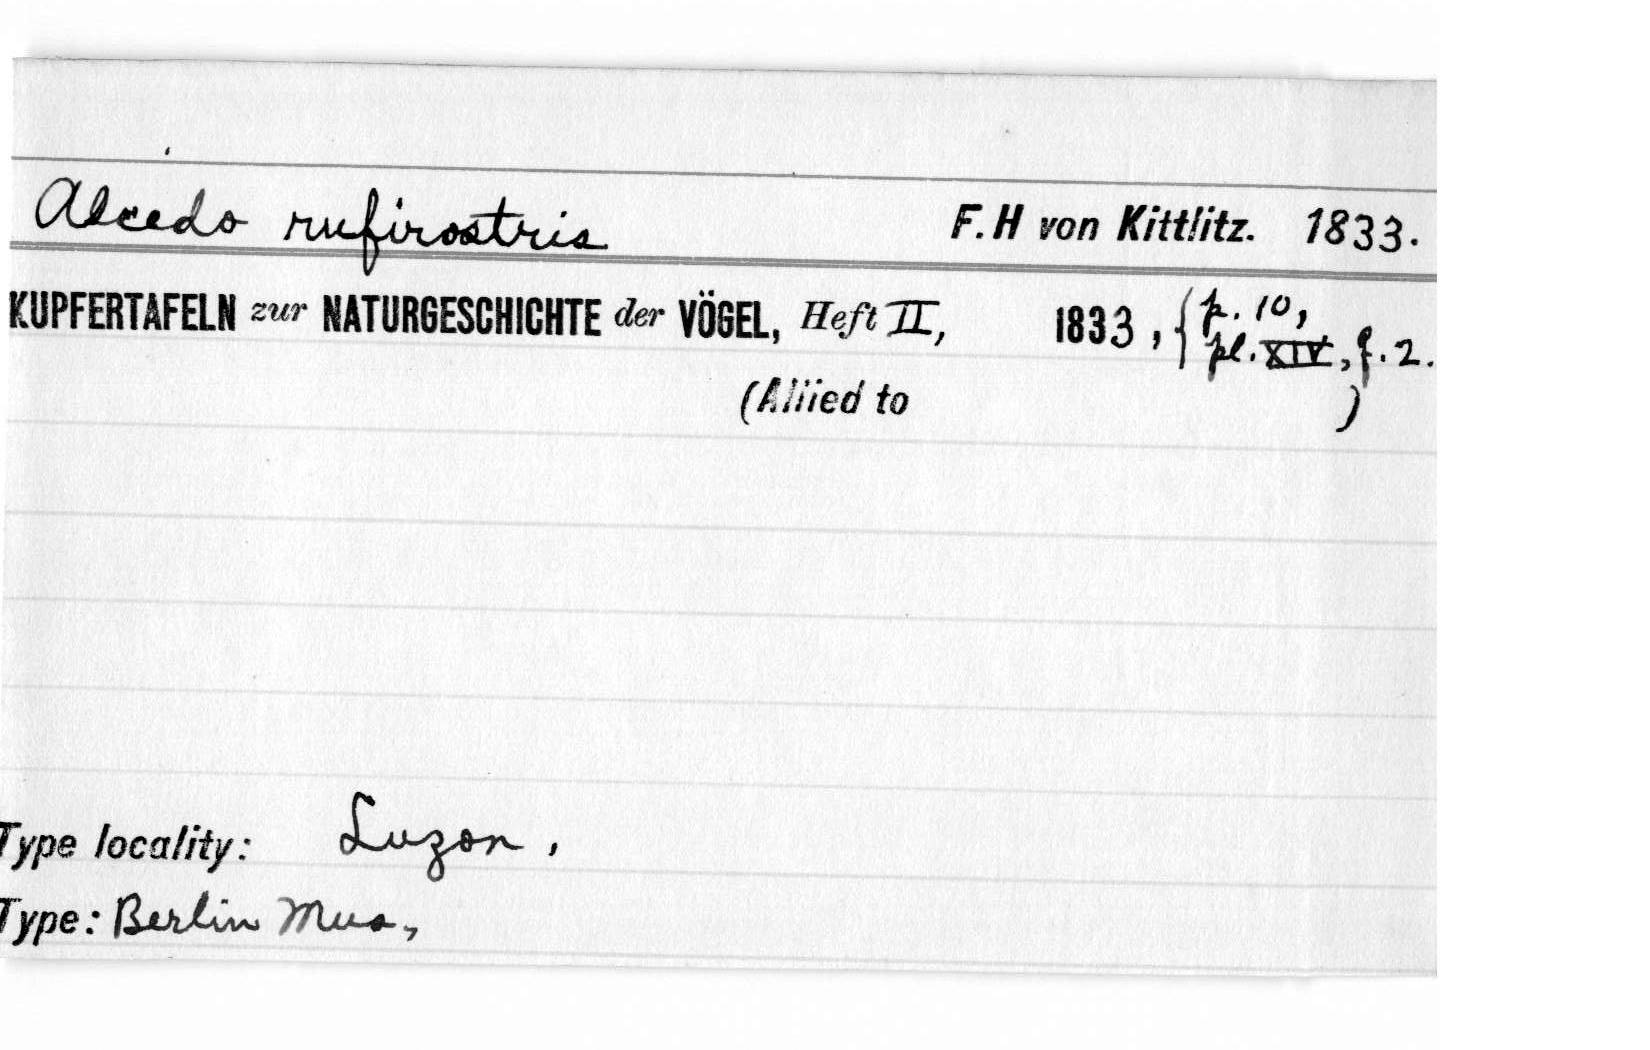 Alcedo rufirostris F.H von Kittlitz. 1833.
KUPFERTAFELN zur NATURGESCHICHTE der VÖGEL, Heft II, 1833, { p. 10,
pl. XIV, f. 2.
(Allied to )
Type locality: Luzon,
Type: Berlin Mus,